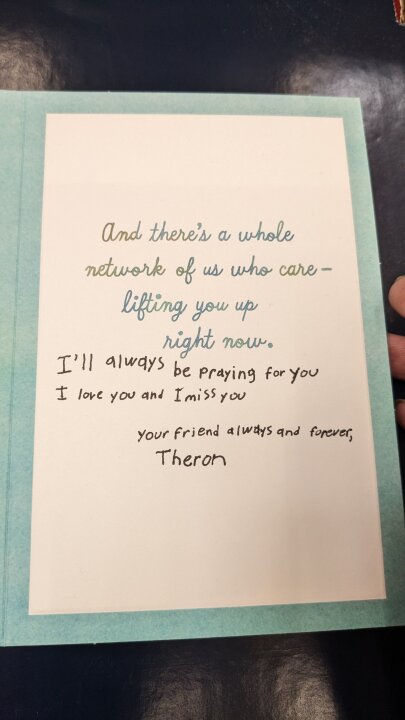 And there's a whole
network of us who care –
lifting you up
right now.
I'll always be praying for you
I love you and I miss you
your friend always and forever,
Theron